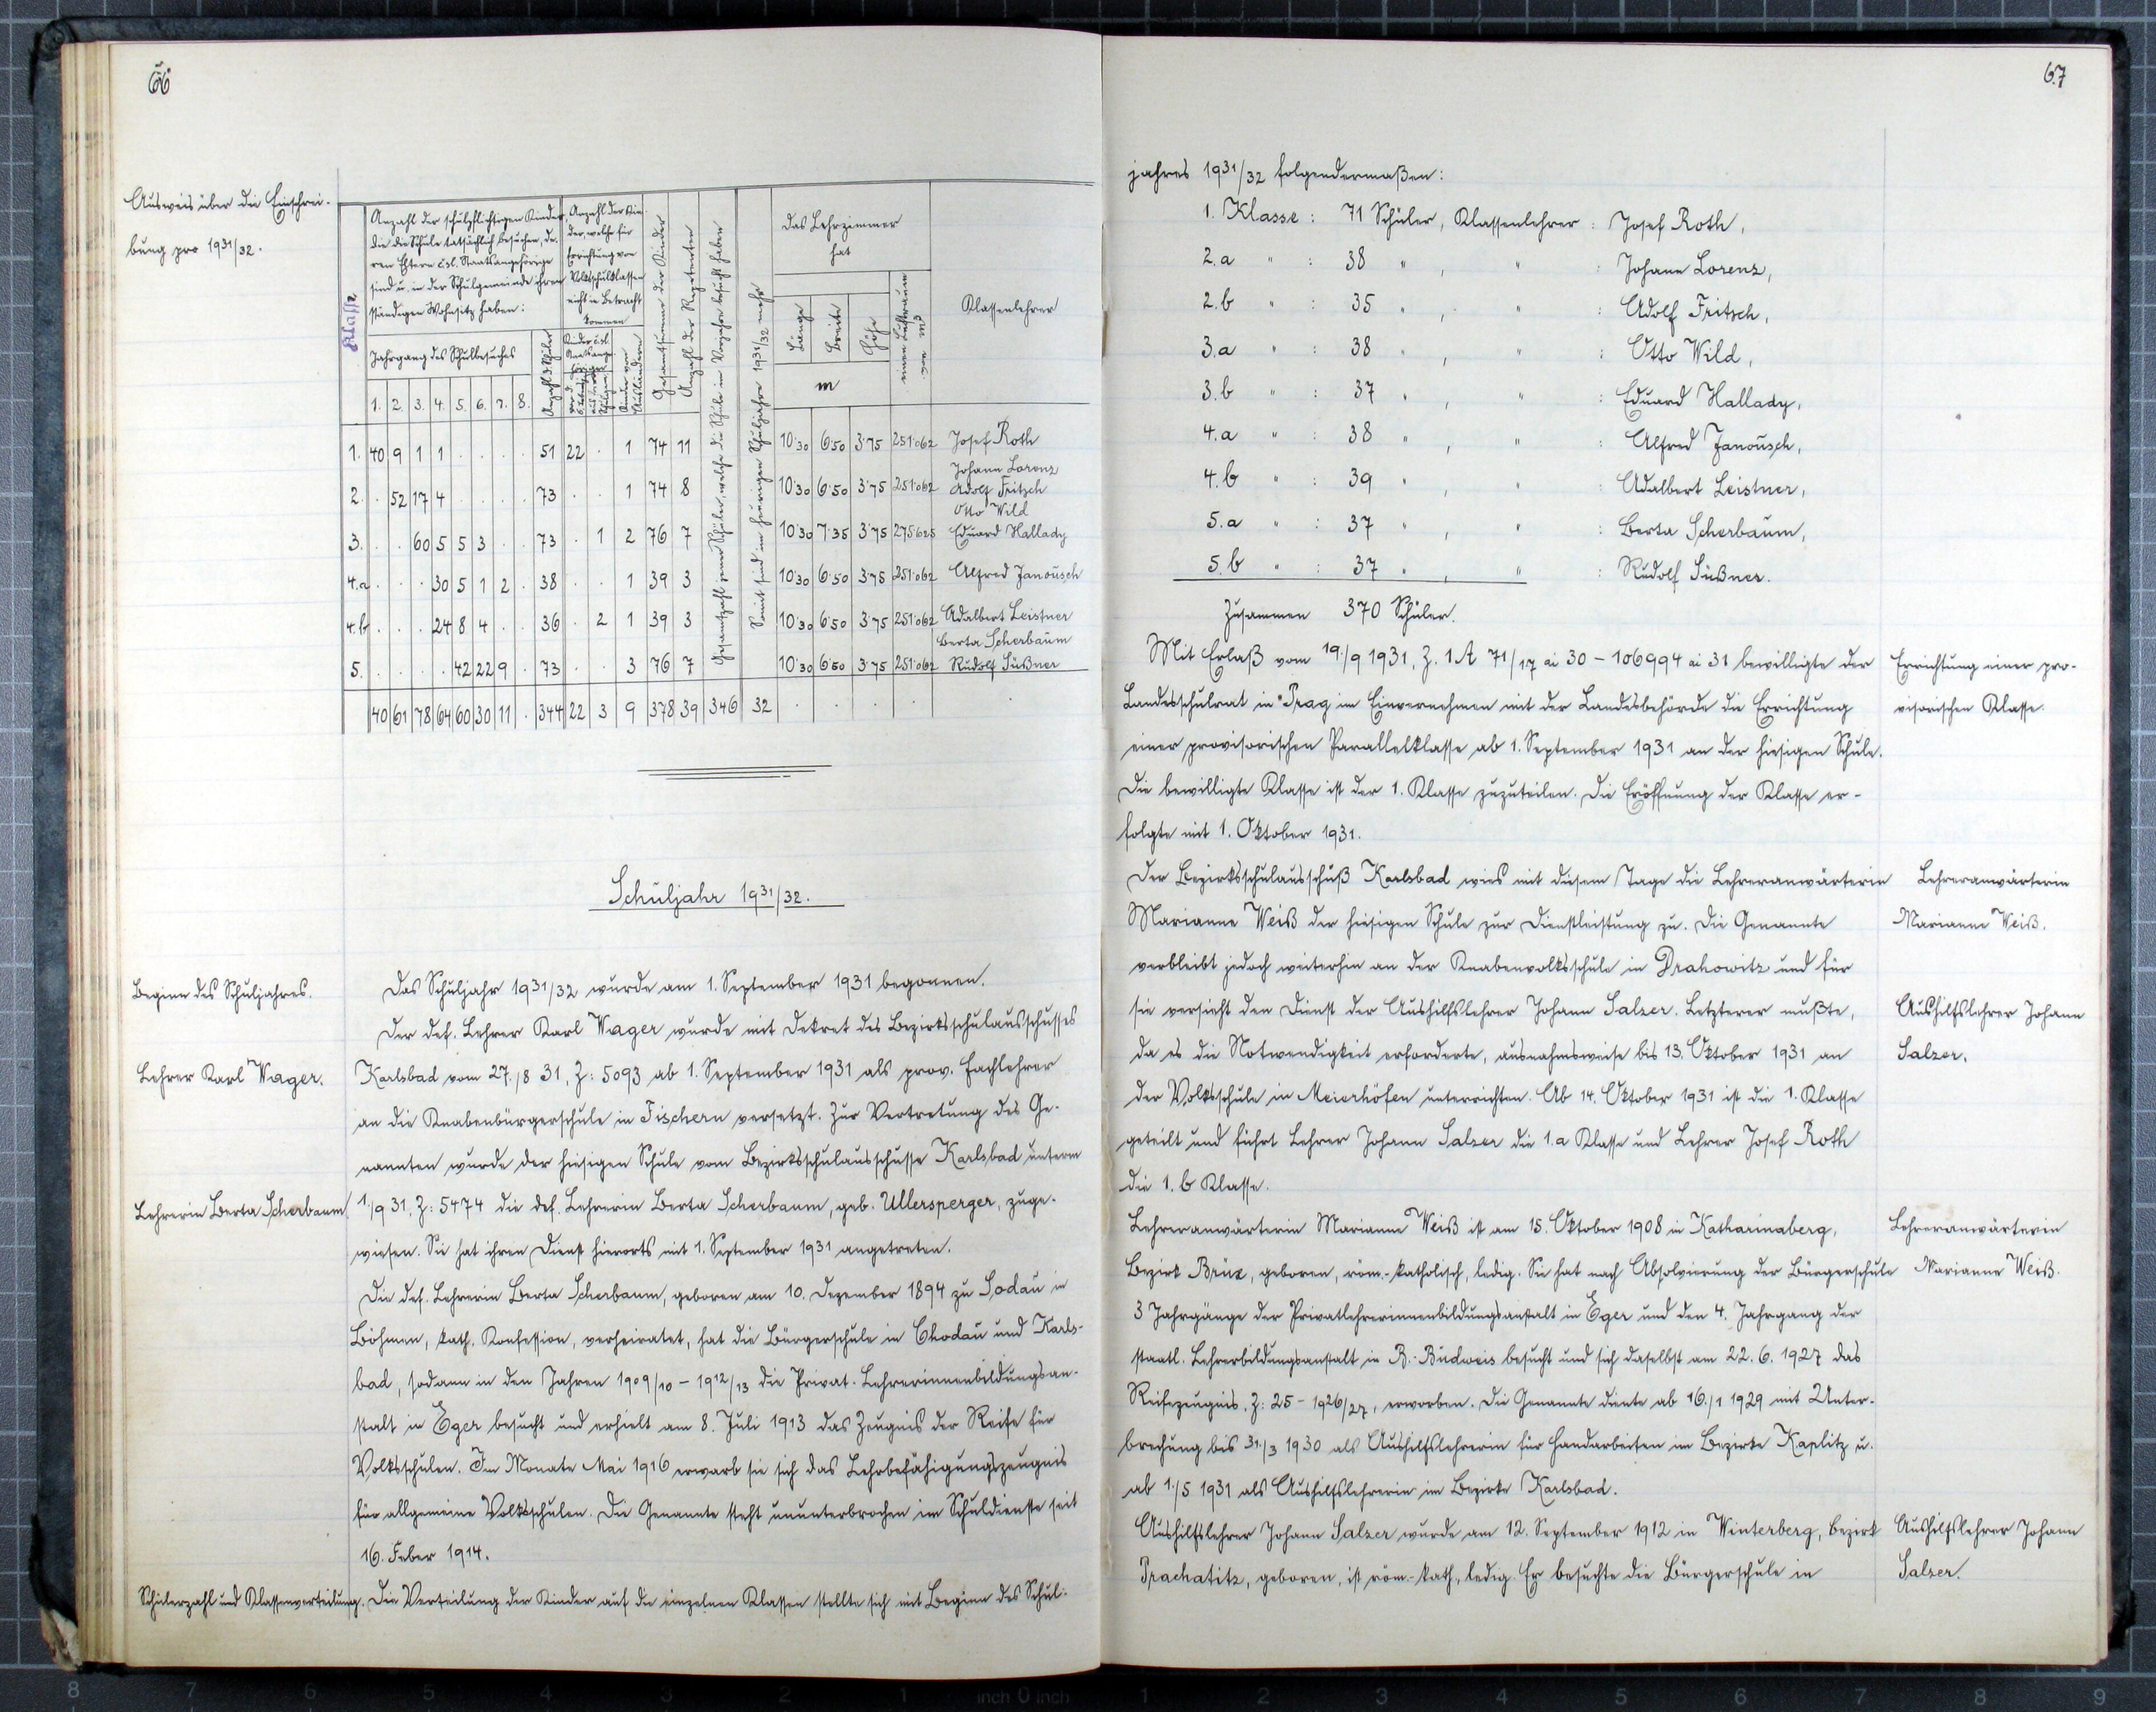 66.
Ausweis über die Einschrei-
bung pro 1931/32.
Klasse
Anzahl der schulpflichtigen Kinder,
die die Schule tatsächlich besuchen, de-
ren Eltern čsl. Staatsangehörige
sind u. in der Schulgemeinde ihren
ständigen Wohnsitz haben:
Jahrgang des Schulbesuches
1. 2. 3. 4. 5. 6. 7. 8.
Anzahl d. Schüler
Anzahl der Kin-
der, welche für
Errichtung von
Volksschulklassen
nicht in Betracht
kommen
Kinder čsl.
Staatsange-
höriger
Kinder von
Ausländern
Gesamtsumme der Kinder
Anzahl der Repetenten
Gesamtzahl jener Schüler, welche die Schule im Vorjahre besucht haben
Somit sind im heurigen Schuljahre 1931/32 mehr
Das Lehrzimmer
hat
Länge Breite Höhe
m
einen Luftraum
von m³
Klassenlehrer
1. 40 9 1 1 . . . . 51 22 . 1 74 11 10·30 6·50 3·75 251·062 Josef Roth
2. . 52 17 4 . . . . 73 . . 1 74 8 10·30 6·50 3·75 251·062 Johann Lorenz
Adolf Fritsch
3. . . 60 5 5 3 . . 73 . 1 2 76 7 10·30 7·35 3·75 275·625 Otto Wild
Eduard Hallady
4.a . . . 30 5 1 2 . 38 . . 1 39 3 10·30 6·50 3·75 251·062 Alfred Janousch
4.b . . . 24 8 4 . . 36 . 2 1 39 3 10·30 6·50 3·75 251·062 Adalbert Leistner
5. . . . . 42 22 9 . 73 . . 3 76 7 10·30 6·50 3·75 251·062 Berta Scherbaum
Rudolf Süßner
40 61 78 64 60 30 11 . 344 22 3 9 378 39 346 32 . . . . .
Schuljahr 1931/32.
Beginn des Schuljahres.
Das Schuljahr 1931/32 wurde am 1. September 1931 begonnen.
Der def. Lehrer Karl Wager wurde mit Dekret des Bezirksschulausschusses
Lehrer Karl Wager.
Karlsbad vom 27./8 31, Z: 5093 ab 1. September 1931 als prov. Fachlehrer
an die Knabenbürgerschule in Fischern versetzt. Zur Vertretung des Ge-
nannten wurde der hiesigen Schule vom Bezirksschulausschusse Karlsbad unterm
Lehrerin Berta Scherbaum.
1./9 31, Z: 5474 die def. Lehrerin Berta Scherbaum, geb. Ullersperger, zuge-
wiesen. Sie hat ihren Dienst hierorts mit 1. September 1931 angetreten.
Die def. Lehrerin Berta Scherbaum, geboren am 10. Dezember 1894 zu Sodau in
Böhmen, kath. Konfession, verheiratet, hat die Bürgerschule in Chodau und Karls-
bad, sodann in den Jahren 1909/10 - 1912/13 die Privat-Lehrerinnenbildungsan-
stalt in Eger besucht und erhielt am 8. Juli 1913 das Zeugnis der Reife für
Volksschulen. Im Monate Mai 1916 erwarb sie sich das Lehrbefähigungszeugnis
für allgemeine Volksschulen. Die Genannte steht ununterbrochen im Schuldienste seit
16. Feber 1914.
Schülerzahl und Klassenverteilung.
Die Verteilung der Kinder auf die einzelnen Klassen stellte sich mit Beginn des Schul-
67
jahres 1931/32 folgendermaßen:
1. Klasse : 71 Schüler, Klassenlehrer : Josef Roth,
2.a " : 38 " , " : Johann Lorenz,
2.b " : 35 " , " : Adolf Fritsch,
3.a " : 38 " , " : Otto Wild,
3.b " : 37 " , " : Eduard Hallady,
4.a " : 38 " , " : Alfred Janousch,
4.b " : 39 " , " : Adalbert Leistner,
5.a " : 37 " , " : Berta Scherbaum,
5.b " : 37 " , " : Rudolf Süßner.
Zusammen 370 Schüler.
Mit Erlaß vom 19./9 1931, Z. 1 A 71/17 ai 30 - 106994 ai 31 bewilligte der
Errichtung einer pro-
Landesschulrat in Prag im Einvernehmen mit der Landesbehörde die Errichtung
visorischen Klasse.
einer provisorischen Parallelklasse ab 1. September 1931 an der hiesigen Schule.
Die bewilligte Klasse ist der 1. Klasse zuzuteilen. Die Eröffnung der Klasse er-
folgte mit 1. Oktober 1931.
Der Bezirksschulausschuß Karlsbad wies mit diesem Tage die Lehreranwärterin
Lehreranwärterin
Marianne Weiß der hiesigen Schule zur Dienstleistung zu. Die Genannte
Marianne Weiß.
verbleibt jedoch weiterhin an der Knabenvolksschule in Drahowitz und für
sie versieht den Dienst der Aushilfslehrer Johann Salzer. Letzterer mußte,
Aushilfslehrer Johann
da es die Notwendigkeit erforderte, ausnahmsweise bis 13. Oktober 1931 an
Salzer.
der Volksschule in Meierhöfen unterrichten. Ab 14. Oktober 1931 ist die 1. Klasse
geteilt und führt Lehrer Johann Salzer die 1.a Klasse und Lehrer Josef Roth
die 1.b Klasse.
Lehreranwärterin Marianne Weiß ist am 15. Oktober 1908 in Katharinaberg,
Lehreranwärterin
Bezirk Brüx, geboren, röm.-katholisch, ledig. Sie hat nach Absolvierung der Bürgerschule
Marianne Weiß.
3 Jahrgänge der Privatlehrerinnenbildungsanstalt in Eger und den 4. Jahrgang der
staatl. Lehrerbildungsanstalt in B.-Budweis besucht und sich daselbst am 22. 6. 1927 das
Reifezeugnis, Z: 25 - 1926/27, erworben. Die Genannte diente ab 16./1 1929 mit Unter-
brechung bis 31./3 1930 als Aushilfslehrerin für Handarbeiten im Bezirke Kaplitz u.
ab 1./5 1931 als Aushilfslehrerin im Bezirke Karlsbad.
Aushilfslehrer Johann Salzer wurde am 12. September 1912 in Winterberg, Bezirk
Aushilfslehrer Johann
Prachatitz, geboren, ist röm.-kath., ledig. Er besuchte die Bürgerschule in
Salzer.
8 7 6 5 4 3 2 1 inch 0 inch 1 2 3 4 5 6 7 8 9